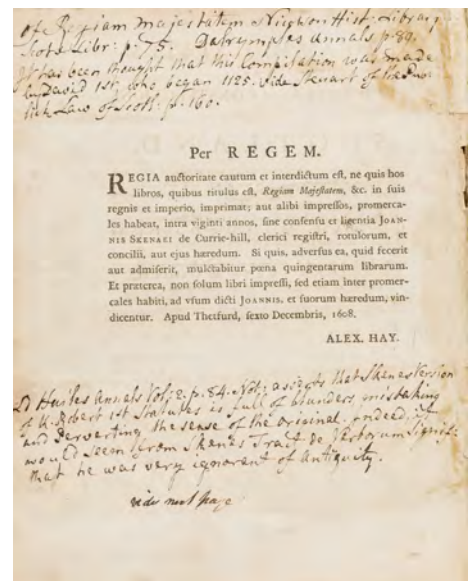 of Regiam Majestatem Nicolson Hist: Library
Scots Libr: p. 75. Dalrymples Annals p. 89.
It has been thought that this Compilation was made
by David 1st who began 1125. vide Steuart of
lick Law of Scotl: p. 160.
Per REGEM.
REGIA auctoritate cautum et interdictum est, ne quis hos
libros, quibus titulus est, Regiam Majestatem, &c. in suis
regnis et imperio, imprimat; aut alibi impressos, promerca-
les habeat, intra viginti annos, sine consensu et licentia JOAN-
NIS SKENAEI de Currie-hill, clerici registri, rotulorum, et
concilii, aut ejus hæredum. Si quis, adversus ea, quid fecerit
aut admiserit, mulctabitur pœna quingentarum librarum.
Et præterea, non solum libri impressi, sed etiam inter promer-
cales habiti, ad vsum dicti JOANNIS, et suorum hæredum, vin-
dicentur. Apud Thetfurd, sexto Decembris, 1608.
ALEX. HAY.
Ld Hailes Annals Vol: 2. p. 84. Not: asserts that Skenes Version
of K. Robert 1st Statutes is full of blunders, mistaking
and perverting the sense of the original. indeed, it
would seem from Skenes Tract de Verborum Signifi:
that he was very ignorant of Antiquity.
vide next page